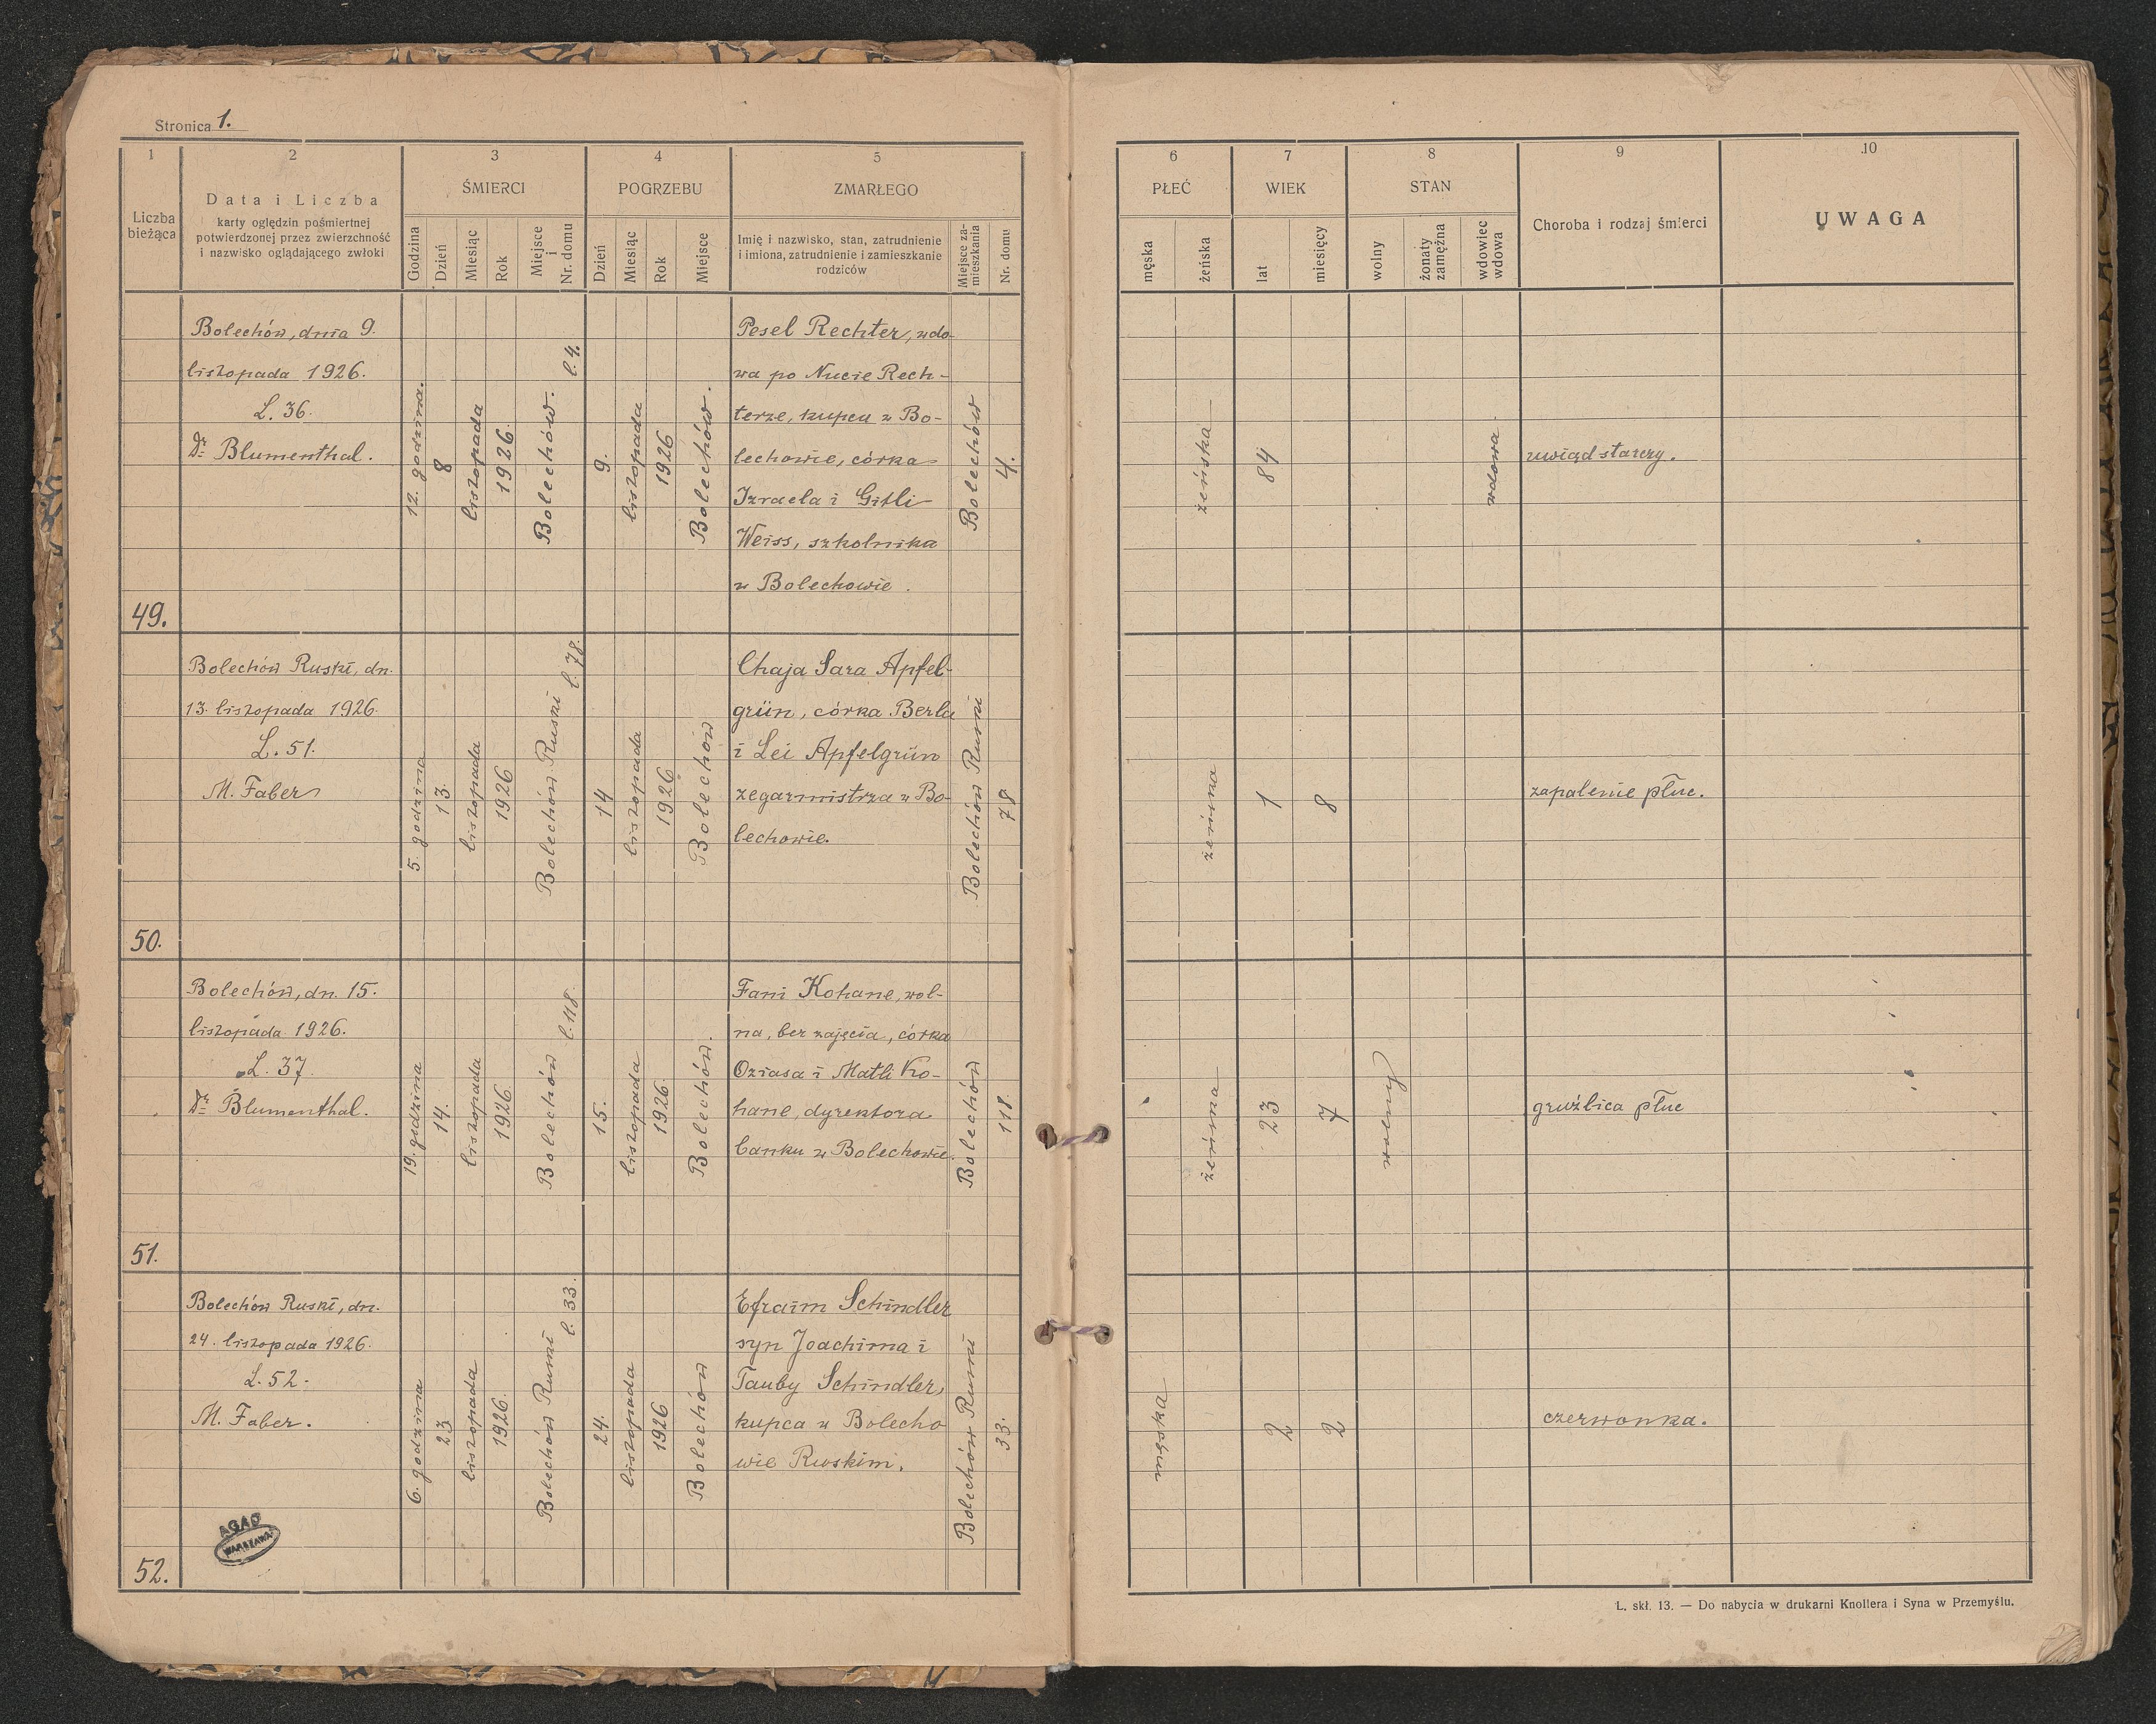 Stronica 1.
1
2
3
4
5
Liczba bieżąca
Data i Liczba
karty oględzin pośmiertnej
potwierdzonej przez zwierzchność
i nazwisko oglądającego zwłoki
ŚMIERCI
Godzina
Dzień
Miesiąc
Rok
Miejsce i Nr. domu
POGRZEBU
Dzień
Miesiąc
Rok
Miejsce
ZMARŁEGO
Imię i nazwisko, stan, zatrudnienie
i imiona, zatrudnienie i zamieszkanie
rodziców
Miejsce zamieszkania
Nr. domu
6
7
8
9
10
PŁEĆ
męska
żeńska
WIEK
lat
miesięcy
STAN
wolny
żonaty zamężna
wdowiec wdowa
Choroba i rodzaj śmierci
UWAGA
49.
Bolechów, dnia 9.
listopada 1926.
L. 36.
Dr. Blumenthal.
12. godzina.
8
listopada
1926.
Bolechów. l. 4.
9.
listopada
1926
Bolechów.
Pesel Rechter, wdo-
wa po Nucie Rech-
terze, kupcu w Bo-
lechowie, córka
Izraela i Gitli
Weiss, szkolnika
w Bolechowie.
Bolechów
4.
żeńska
84
wdowa
uwiąd starczy.
50.
Bolechów Ruski, dn.
13. listopada 1926.
L. 51.
M. Faber
5. godzina
13.
listopada
1926
Bolechów Ruski l. 78.
14
listopada
1926
Bolechów
Chaja Sara Apfel-
grün, córka Berla
i Lei Apfelgrün
zegarmistrza w Bo-
lechowie.
Bolechów Ruski
78.
żeńska
1
8
zapalenie płuc.
51.
Bolechów, dn. 15.
listopada 1926.
L. 37.
Dr. Blumenthal.
19. godzina
14.
listopada
1926.
Bolechów l. 118.
15.
listopada
1926.
Bolechów.
Fani Kohane, wol-
na, bez zajęcia, córka
Oziasa i Matli Ko-
hane, dyrektora
banku w Bolechowie.
Bolechów
118.
żeńska
23
7
wolny
gruźlica płuc
52.
Bolechów Ruski, dn.
24. listopada 1926.
L. 52.
M. Faber.
6. godzina
23
listopada
1926.
Bolechów Ruski l. 33.
24.
listopada
1926
Bolechów
Efraim Schindler
syn Joachima i
Tauby Schindler,
kupca w Bolecho
wie Ruskim.
Bolechów Ruski
33.
męska
2
2
czerwonka.
AGAD
WARSZAWA
L. skł. 13. — Do nabycia w drukarni Knollera i Syna w Przemyślu.